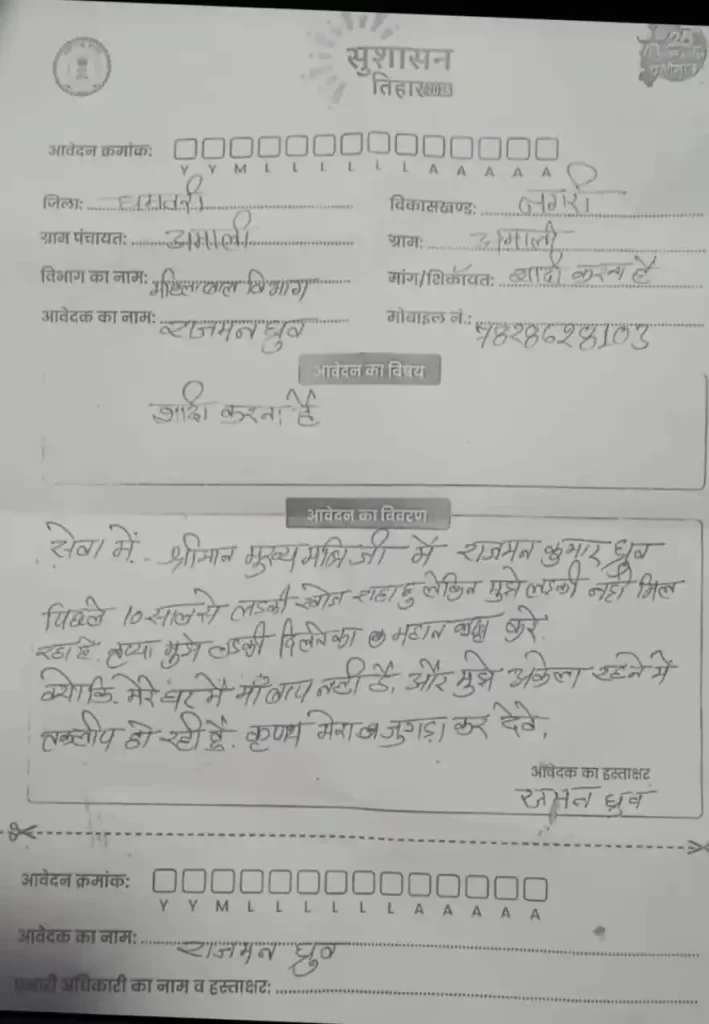 सुशासन
तिहार
आवेदन क्रमांक:
Y Y M L L L L L L A A A A A
जिला: धमतरी
विकासखण्ड: नगरी
ग्राम पंचायत: अमाली
ग्राम: अमाली
विभाग का नाम: महिला बाल विभाग
मांग/शिकायत: शादी करना है
आवेदक का नाम: राजमन ध्रुव
मोबाइल नं.:
आवेदन का विषय
शादी करना है
आवेदन का विवरण
सेवा में - श्रीमान मुख्यमंत्रि जी में राजमन कुमार ध्रुव
पिछले 10 साल से लडकी खोज राहा हु लेकिन मुझे लडकी नही मिल
रहा है. मुझे लडकी दिलनेका महान करे.
क्योकि. मेरे घर मै माँ बाप नही है, और मुझे अकेला रहने में
तकलीप हो रही है. मेरा जुगाड़ा कर देवे.
आवेदक का हस्ताक्षर
राजमन ध्रुव
आवेदन क्रमांक:
Y Y M L L L L L L A A A A A
आवेदक का नाम: राजमन ध्रुव
प्रभारी अधिकारी का नाम व हस्ताक्षर: